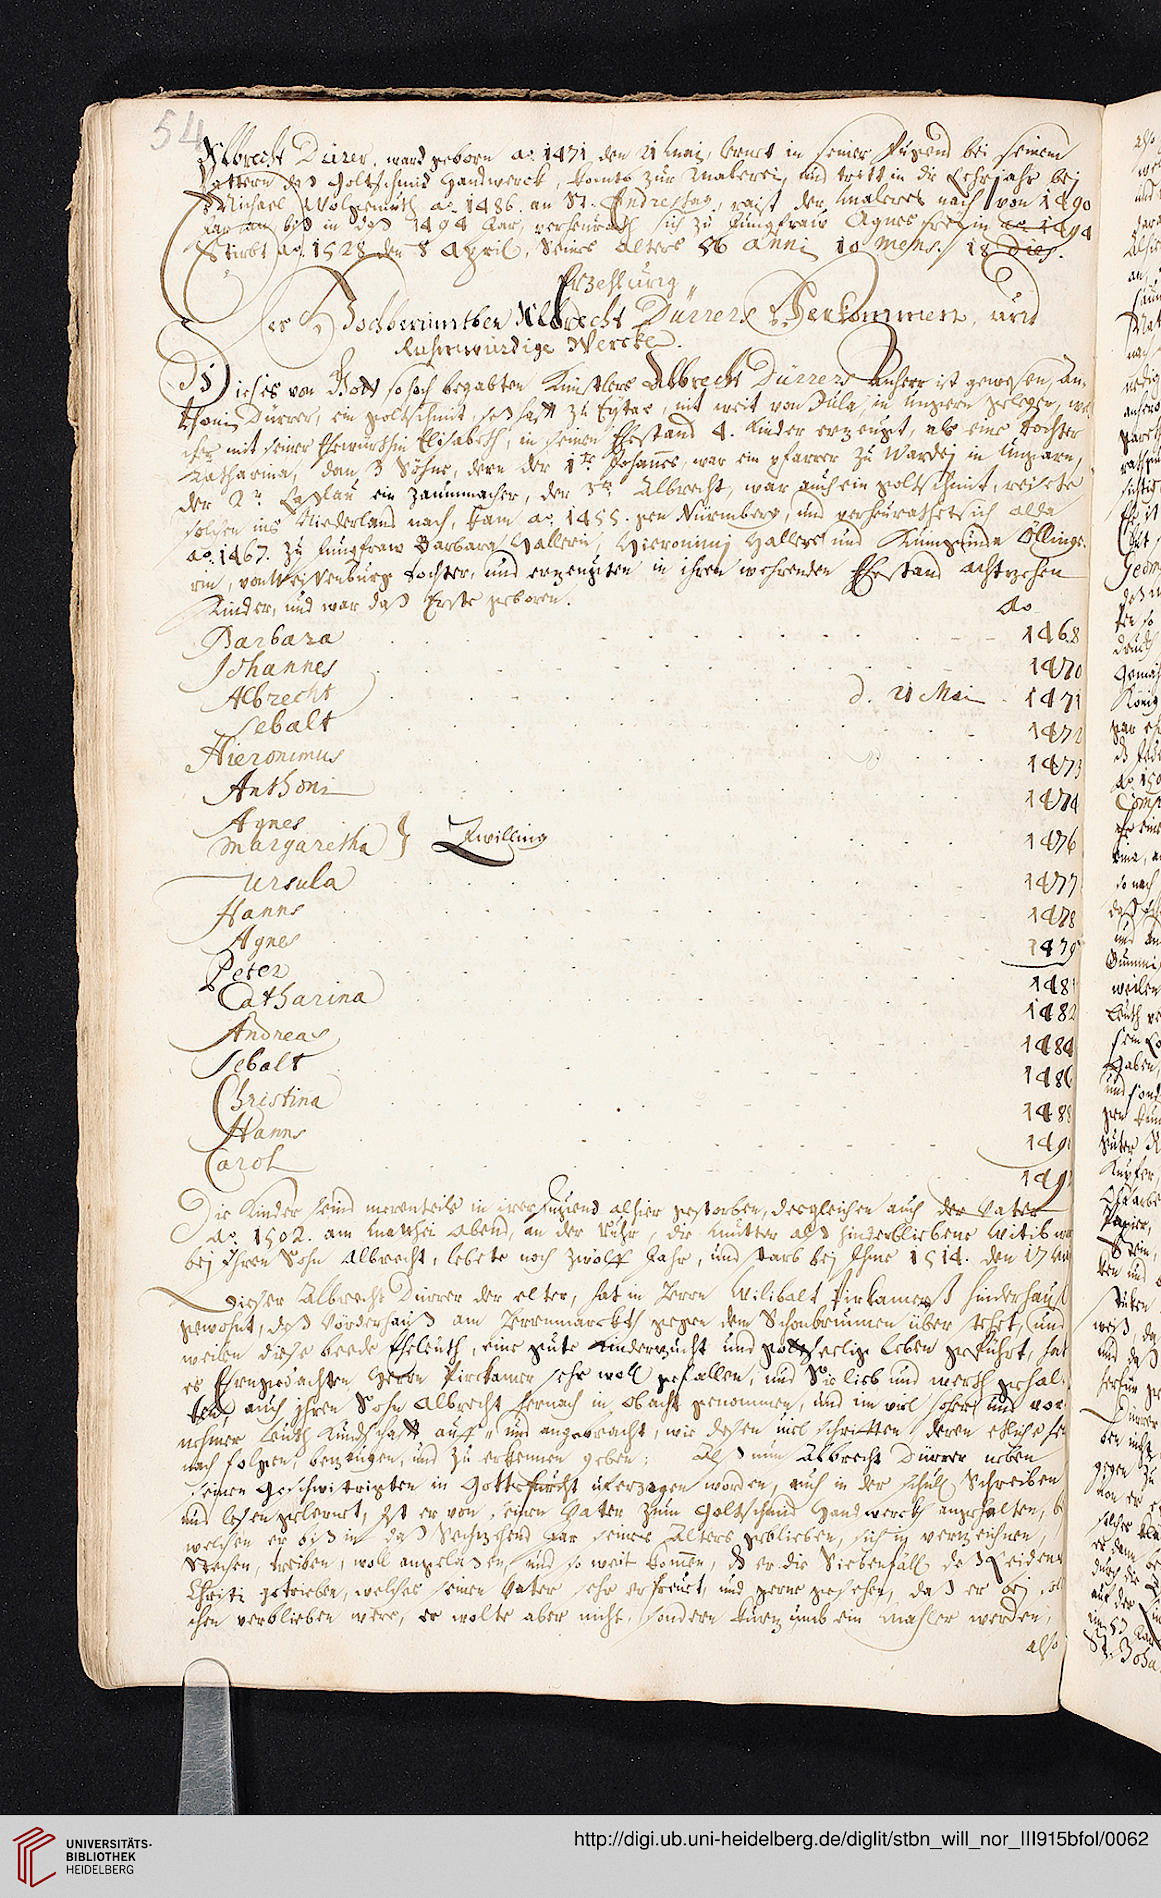 54
Albrecht Dürer, ward geborn ao. 1471 den 21 Mai, lernet in seiner Jugend bei seinem
Vattern daß Goltschmid Handwerck, komts zur Malerei, und tritt in die Lehrjahr bej
Michael Wolgemuth ao. 1486. an St. Andrestag, raist der Malerei nach von 1490
Jar an biß in daß 1494 Jar, verheurath sich zu Jungfraw Agnes Freyin ao. 1494
Stirbt ao. 1528 den 8 April, Seines alters 56 anni 10 mens. 18 dies.
Erzehlung
Des Hochberümtben Albrecht Dürrers Herkommen, und
Ruhmwürdige Wercke.
Dieses von Gott so hoch begabten Künstlers Albrecht Dürrers Anherr ist gewesen, An-
thoni Dürrer, ein goltschmit, seßhafft zu Eytas, nit weit von Jula, in Ungern gelegen, wel
cher mit seiner Ehewürthin Elisabeth, in seinen Ehestand 4. Kinder erzeugt, als eine Tochter
Katharina, dan 3 Söhne, dern der 1te Johannes, war ein pfarrer zu Wardej in Ungarn,
der 2te Laßlau ein Zaummacher, der 3te Albrecht, war auch ein goltschmit, reiste
solchen ins Niederland nach, kam ao. 1455. gen Nürmberg, und verheurathet sich alda
ao. 1467. zu Jungfraw Barbara Hallerin, Hieronimj Hallers und Kungunda Öllinge-
rin, von Weissenburg Tochter, und erzeugten in ihren wehrenden Ehestand achtzehen
Kinder, und war daß Erste geboren.
Ao
Barbara 1468
Johannes 1470
Albrecht d. 21 Mai 1471
Sebalt 1472
Hieronimus 1473
Anthoni 1474
Agnes
Margaretha } Zwilling 1476
Ursula 1477
Hanns 1478
Agnes 1479
Peter 148
Catharina 1482
Andreas 1484
Sebalt 1486
Christina 1488
Hanns 149
Carol 149
Die Kinder seind merenteils in irer Jugend alhier gestorben, dergleichen auch der Vater
Ao. 1502. am Mathei Abend, an der Ruhr, die Mutter alß hinderbliebene Witib war
bej Ihren Sohn Albrecht, lebete noch zwölff Jahr, und starb bej Ihme 1514. den 17 Mai
Dieser Albrecht Dürrer der elter, hat in Herrn Wilibalt Pirkamerß hinderhauß
gewohnt, daß Vorderhauß am Herrenmarckth gegen dem Schönbrunnen über stehet, und
weilen diese beede Eheleuth, eine gute Kinderzucht und gottseelige leben geführt, hat
es Ehrngedachten Herrn Pirckamer sehr woll gefallen, und Sie lieb und werth gehal-
ten, auch ihren Sohn Albrecht hernach in obacht genommen, und im viel hoher und vor-
nehmer leuth Kundschafft auff, und angebracht, wie dessen viel schrifften deren etliche hie
nach folgen, bezeugen, und zu erkennen geben; Alß nun Albrecht Dürrer neben
seinen Geschwistrigten in Gottesfurcht auferzogen worden, auch in der Schul Schreiben
und lesen gelernet, ist er von seinen Vater zum Goltschmid Handwerck angehalten, b
welchen er biß in daß Sechzehend Jar seines Alters geblieben, sich in verzeichnen,
Stechen, treiben, woll angelassen, und so weit kommen, dß er die Siebenfäll deß Leidens
Christi getrieben, welches seinen Vater sehr erfreuet, und gerne gesehen, daß er bej sol
chen verblieben were, er wolte aber nicht, sondern kurzumb ein Mahler werden,
also
UNIVERSITÄTS-
BIBLIOTHEK
HEIDELBERG
http://digi.ub.uni-heidelberg.de/diglit/stbn_will_nor_III915bfol/0062